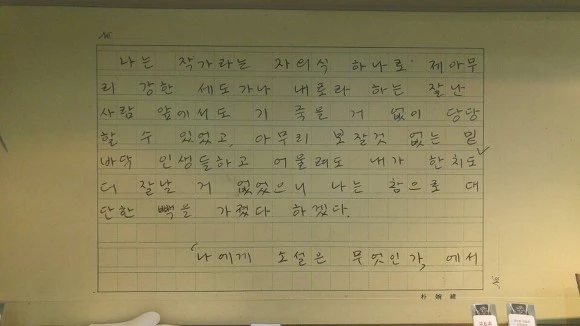 나는 작가라는 자의식 하나로 제아무
리 강한 세도가나 내로라 하는 잘난
사람 앞에서도 기 죽을 거 없이 당당
할 수 있었고, 아무리 보잘것 없는 밑
바닥 인생들하고 어울려도 내가 한치도
더 잘난 거 없었으니 나는 참으로 대
단한 빽을 가졌다 하겠다.
'나에게 소설은 무엇인가' 에서